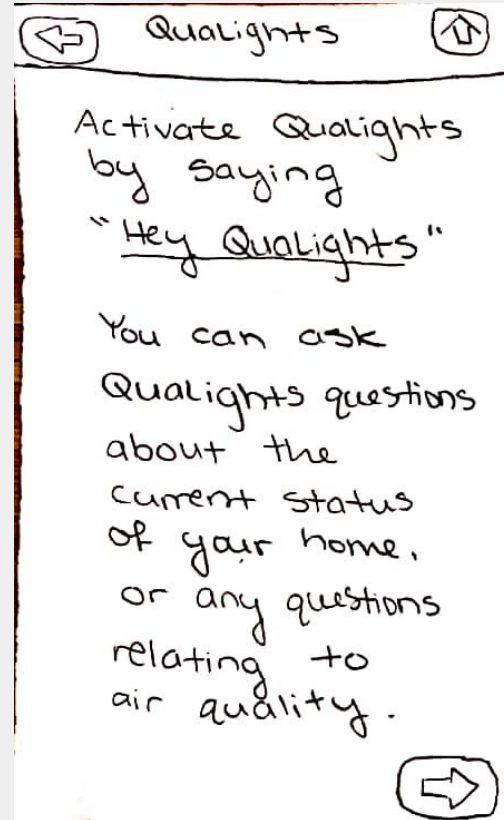 QuaLights
Activate Qualights
by saying
"Hey QuaLights"
You can ask
QuaLights questions
about the
current status
of your home,
or any questions
relating to
air quality.